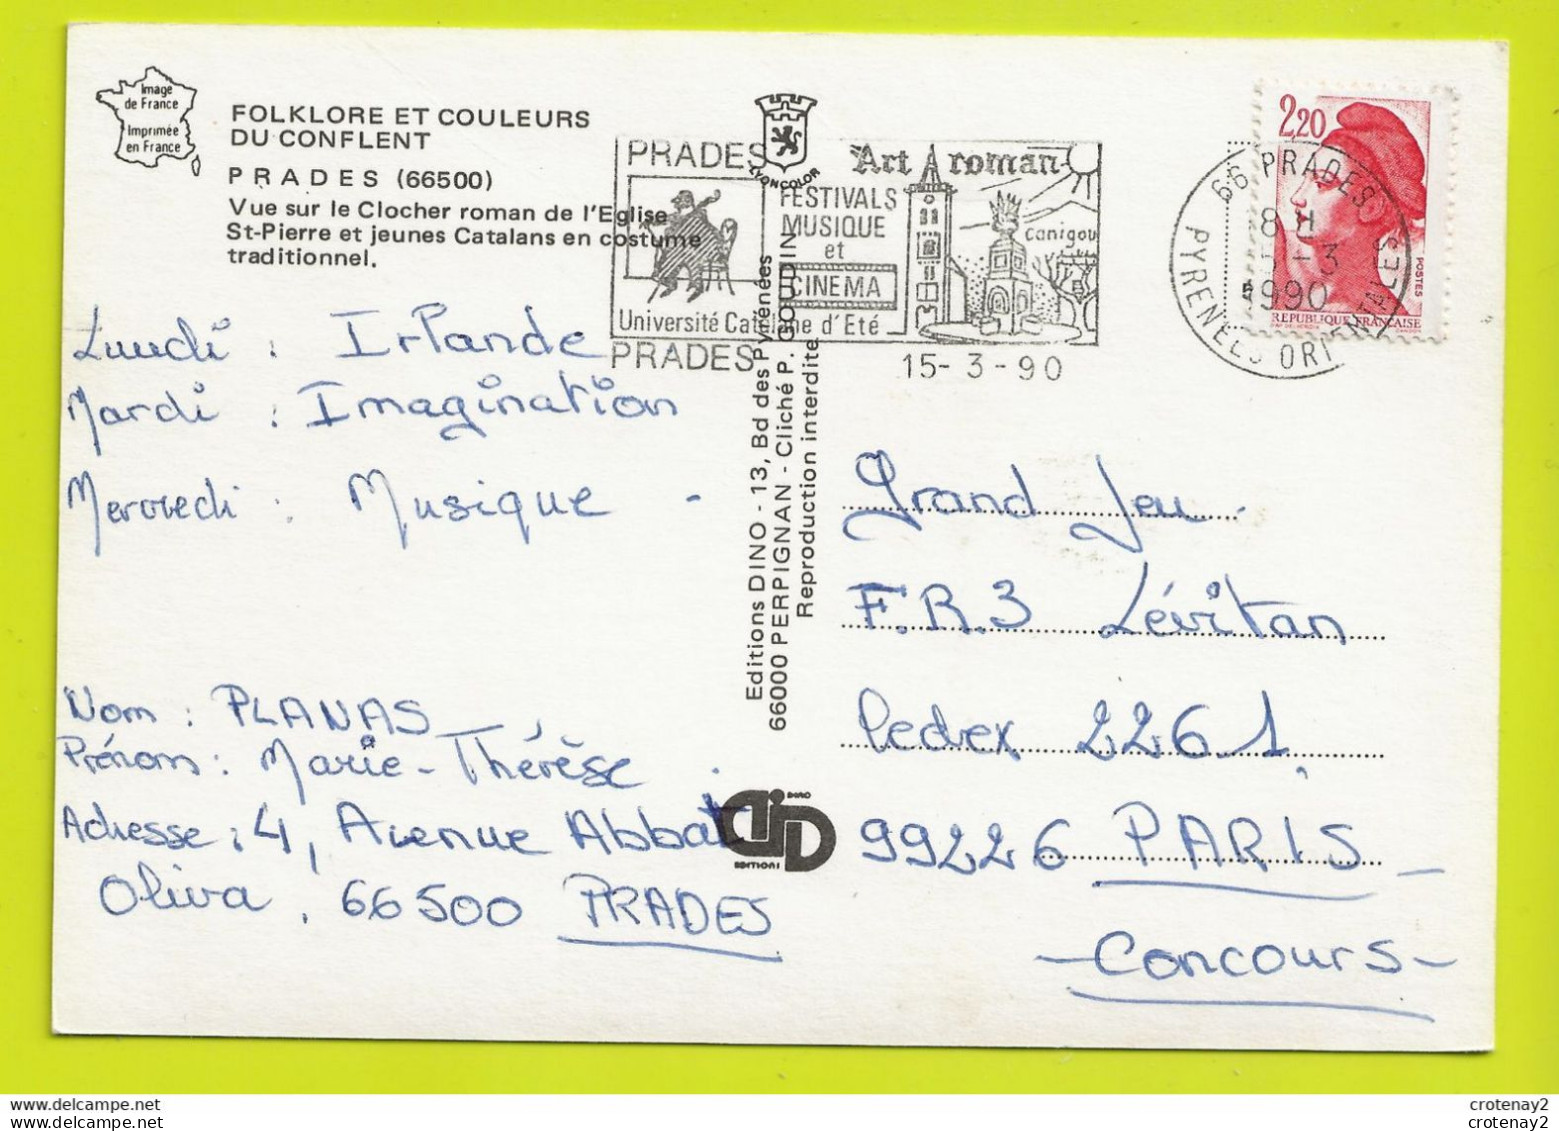 Image
de France
Imprimée
en France
FOLKLORE ET COULEURS
DU CONFLENT
PRADES (66500)
Vue sur le Clocher roman de l'Eglise
St-Pierre et jeunes Catalans en costume
traditionnel.
PRADES
Université Catalane d'Eté
PRADES
LYONCOLOR
FESTIVALS
MUSIQUE
et
CINEMA
Art roman
Canigou
15-3-90
2,20
POSTES
REPUBLIQUE FRANÇAISE
66 PRADES
18 H
15-3
1990
PYRENEES ORIENTALES
Lundi : Irlande
Mardi : Imagination
Mercredi : Musique -
Nom : PLANAS
Prénom : Marie-Thérèse
Adresse : 4, Avenue Abbat
Oliva. 66500 PRADES
Editions DINO - 13, Bd des Pyrénées
66000 PERPIGNAN - Cliché P. GOUDIN
Reproduction interdite
DINO
EDITIONS
Grand Jeu
F.R.3 Lévitan
Cedex 2261
99226 PARIS
- Concours -
crotenay2
crotenay2